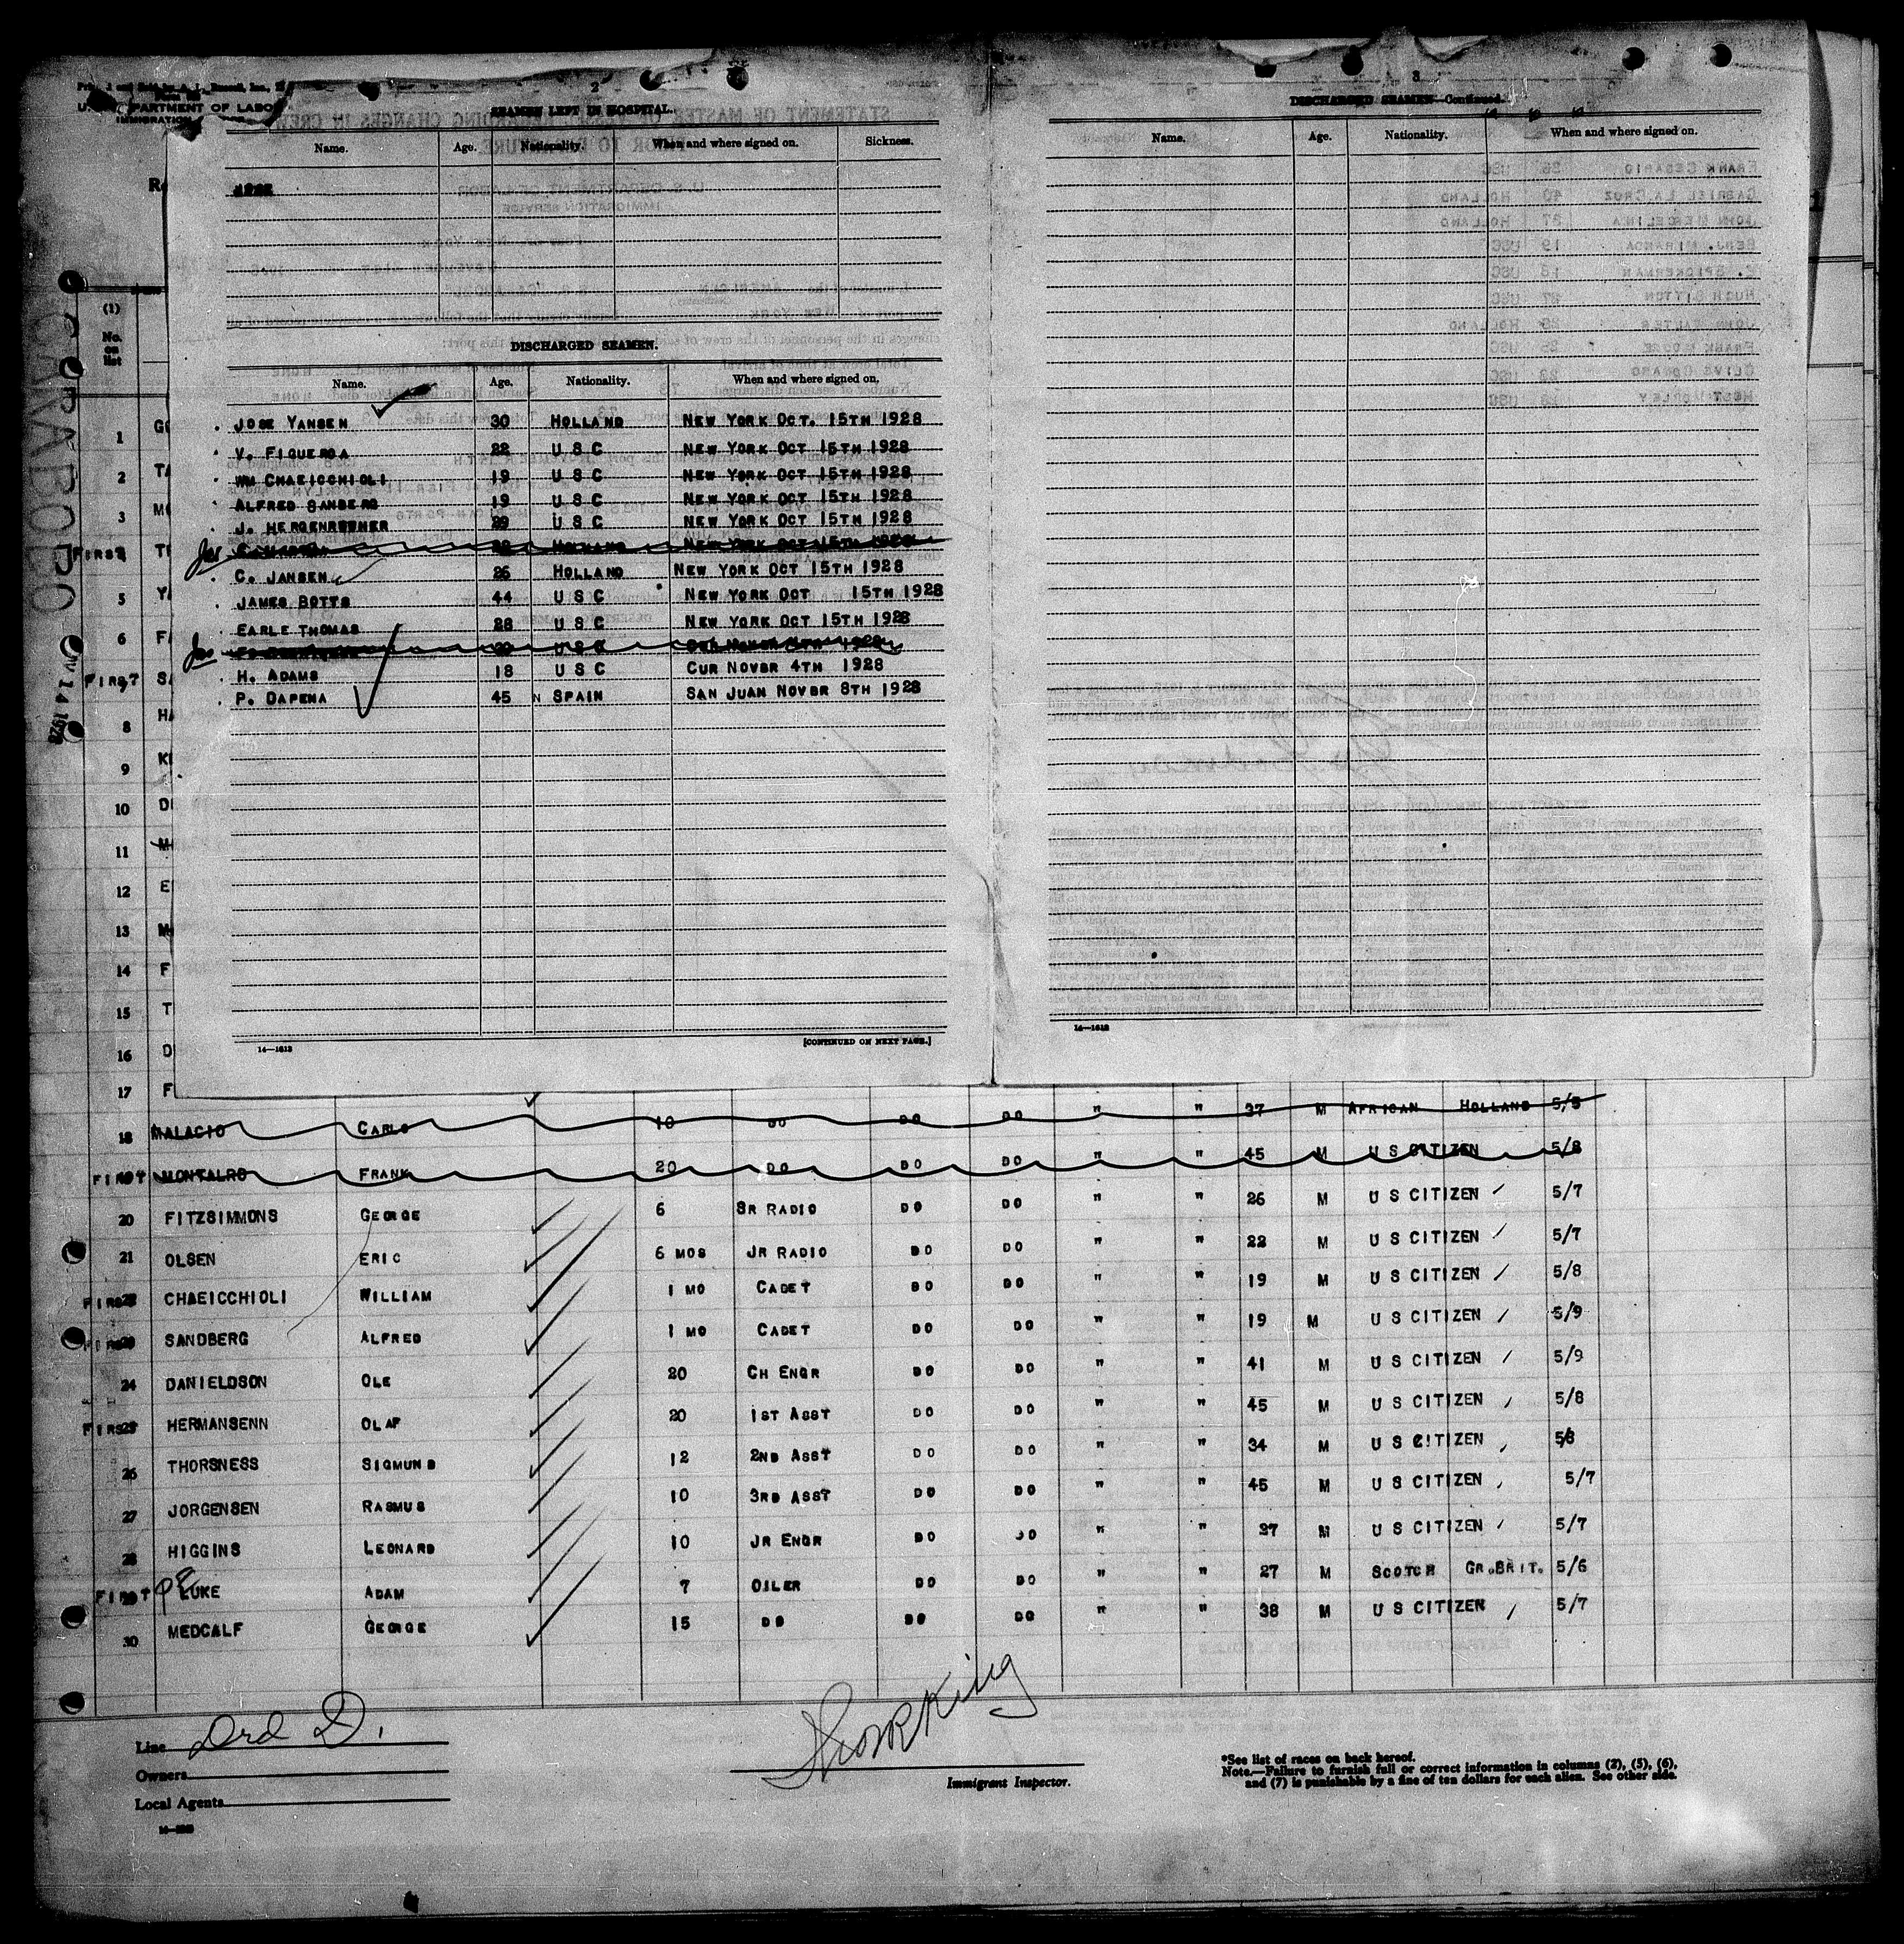 U. DEPARTMENT OF LABOR
IMMIGRATION
2
SEAMEN LEFT IN HOSPITAL.
Name. Age. Nationality. When and where signed on. Sickness.
DISCHARGED SEAMEN.
Name. Age. Nationality. When and where signed on.
JOSE YANSEN 30 HOLLAND NEW YORK OCT. 15TH 1928
V. FIGUEROA 22 U S C NEW YORK OCT 15TH 1928
WM CHAEICCHIOLI 19 U S C NEW YORK OCT 15TH 1928
ALFRED SANBERG 19 U S C NEW YORK OCT 15TH 1928
J. HERGENROTHER 29 U S C NEW YORK OCT 15TH 1928
HOLLAND NEW YORK OCT 15TH 1928
C. JANSEN 26 HOLLAND NEW YORK OCT 15TH 1928
JAMES BOTTS 44 U S C NEW YORK OCT 15TH 1928
EARLE THOMAS 28 U S C NEW YORK OCT 15TH 1928
U S C 1928
H. ADAMS 18 U S C CUR NOVBR 4TH 1928
P. DAPENA 45 N SPAIN SAN JUAN NOVBR 8TH 1928
14—1613
[CONTINUED ON NEXT PAGE.]
3
DISCHARGED SEAMEN—Continued.
Name. Age. Nationality. When and where signed on.
14—1613
CARABOBO
NOV 14 1928
(1)
No. on list
1 GO
2 TA
3 MO
FIRST 4 T
5 YA
6 F
FIRST 7 SA
8 HA
9 KI
10 D
11 M
12 E
13 M
14 F
15 T
16 D
17 F
18 MALACIO CARLO 10 DO DO DO " " 37 M AFRICAN HOLLAND 5/5
FIRST 19 MONTALRO FRANK 20 DO DO DO " " 45 M U S CITIZEN 5/8
20 FITZSIMMONS GEORGE 6 SR RADIO DO DO " " 26 M U S CITIZEN 5/7
21 OLSEN ERIC 6 MOS JR RADIO DO DO " " 22 M U S CITIZEN 5/7
FIRST 22 CHAEICCHIOLI WILLIAM 1 MO CADET DO DO " " 19 M U S CITIZEN 5/8
FIRST 23 SANDBERG ALFRED 1 MO CADET DO DO " " 19 M U S CITIZEN 5/9
24 DANIELDSON OLE 20 CH ENGR DO DO " " 41 M U S CITIZEN 5/9
FIRST 25 HERMANSENN OLAF 20 1ST ASST DO DO " " 45 M U S CITIZEN 5/8
26 THORSNESS SIGMUND 12 2ND ASST DO DO " " 34 M U S CITIZEN 5/8
27 JORGENSEN RASMUS 10 3RD ASST DO DO " " 45 M U S CITIZEN 5/7
28 HIGGINS LEONARD 10 JR ENGR DO DO " " 27 M U S CITIZEN 5/7
FIRST 29 LUKE ADAM 7 OILER DO DO " " 27 M SCOTCH GR.BRIT. 5/6
30 MEDCALF GEORGE 15 DO DO DO " " 38 M U S CITIZEN 5/7
Line Drd D.
Owners
Local Agents
Immigrant Inspector.
*See list of races on back hereof.
Note.—Failure to furnish full or correct information in columns (2), (5), (6),
and (7) is punishable by a fine of ten dollars for each alien. See other side.